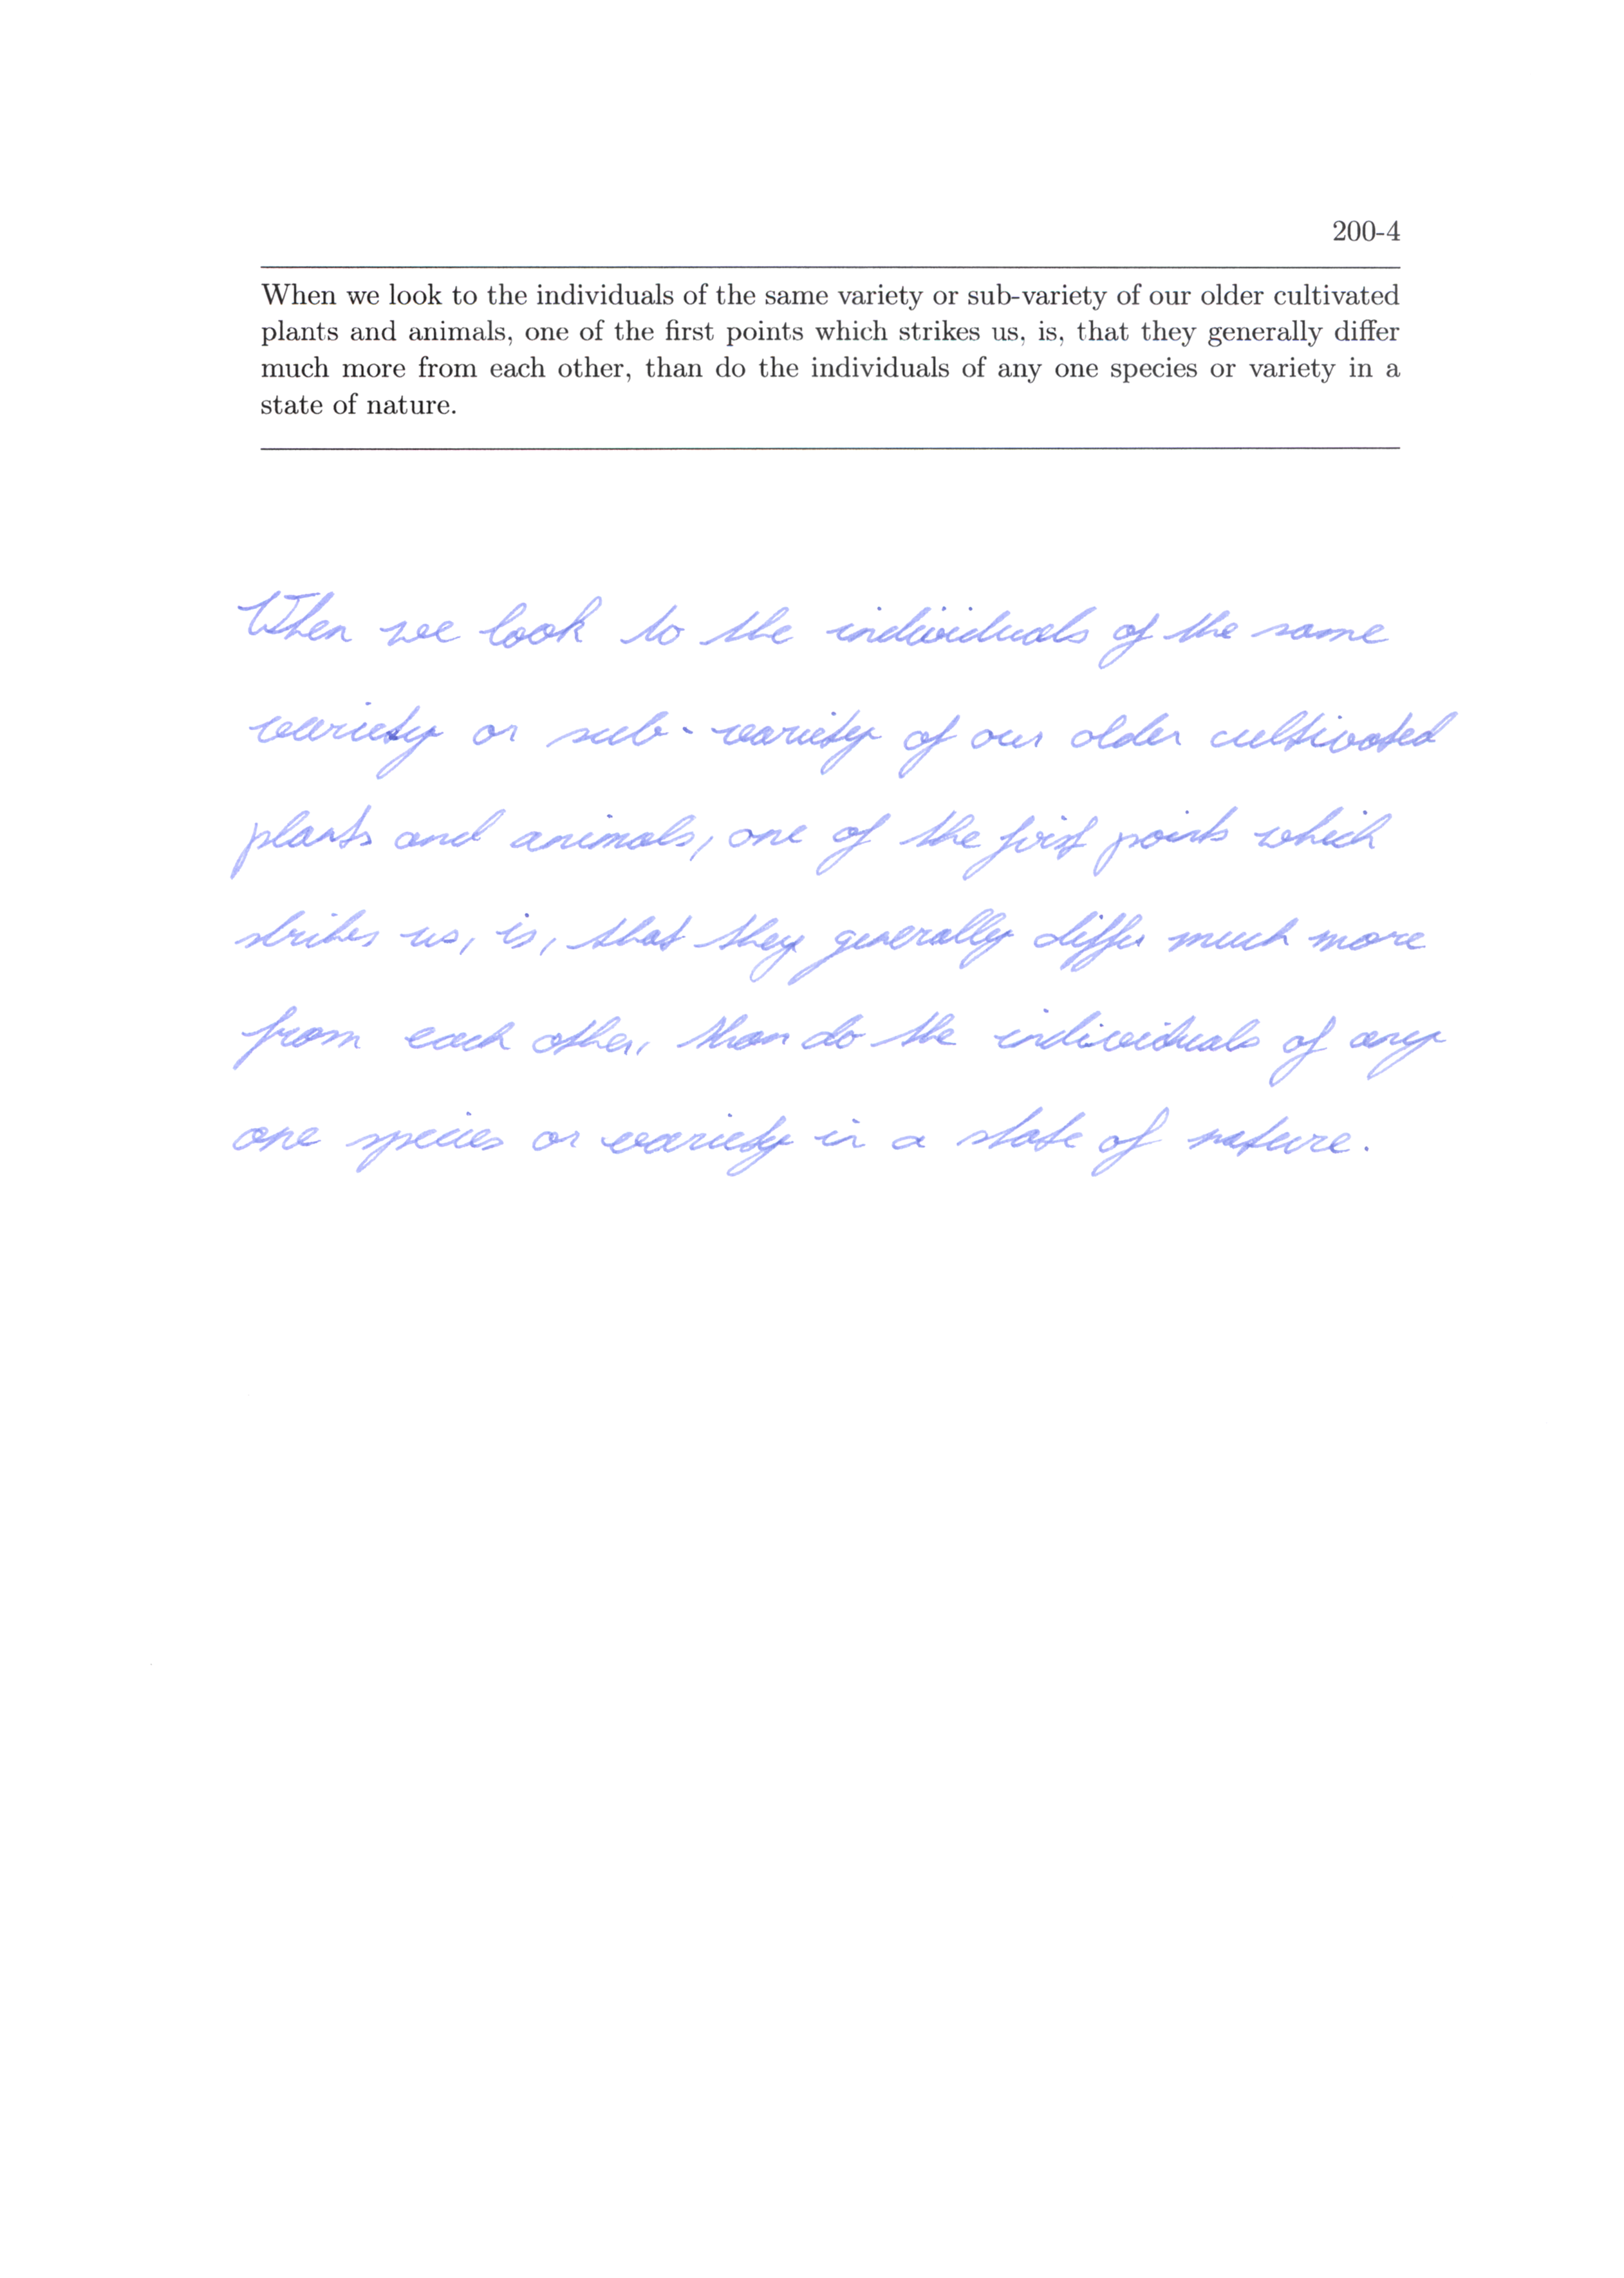 200-4
When we look to the individuals of the same variety or sub-variety of our older cultivated
plants and animals, one of the first points which strikes us, is, that they generally differ
much more from each other, than do the individuals of any one species or variety in a
state of nature.
When we look to the individuals of the same
variety or sub-variety of our older cultivated
plants and animals, one of the first points which
strikes us, is, that they generally differ much more
from each other, than do the individuals of any
one species or variety in a state of nature.